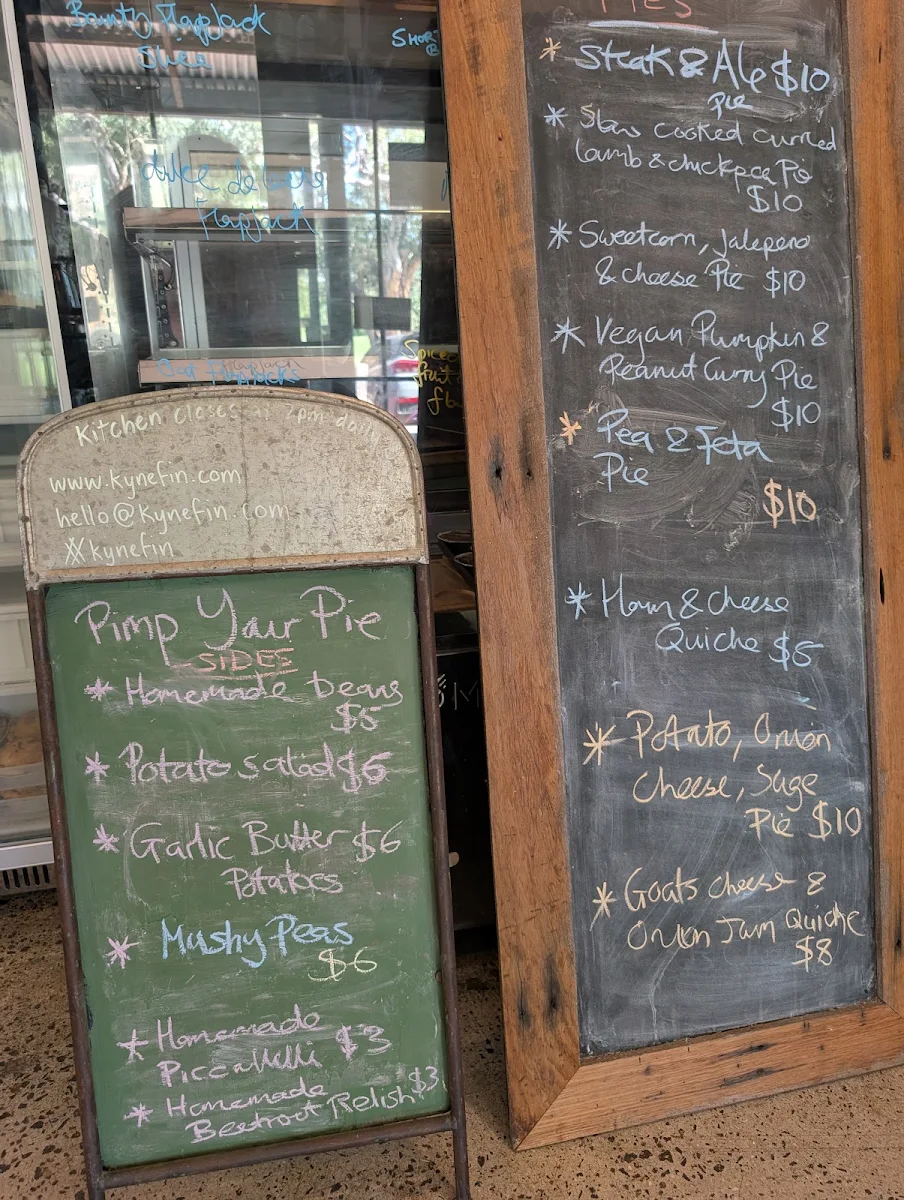 Bounty Flapjack
Slice
dulce de leche
Flapjack
Oat Flapjacks
Spiced
fruit
Kitchen closes at 2pm daily
www.kynefin.com
hello@kynefin.com
kynefin
Pimp Your Pie
SIDES
* Homemade beans
$5
* Potato salad $6
* Garlic Butter $6
Potatoes
* Mushy Peas
$6
* Homemade
Piccalilli $3
* Homemade
Beetroot Relish $3
PIES
* Steak & Ale $10
Pie
* Slow cooked curried
lamb & chickpea Pie
$10
* Sweetcorn, Jalepeno
& cheese Pie $10
* Vegan Pumpkin &
Peanut Curry Pie
$10
* Pea & Feta
Pie
$10
* Ham & Cheese
Quiche $5
* Potato, Onion
Cheese, Sage
Pie $10
* Goats cheese &
Onion Jam Quiche
$8